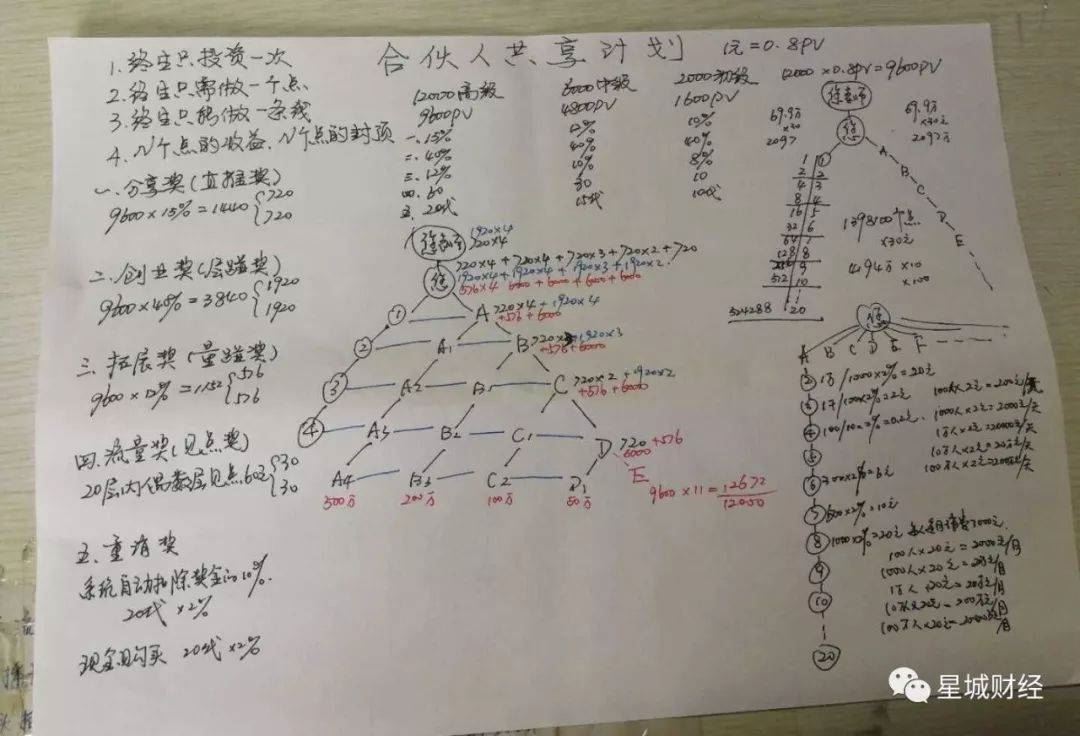 合伙人共享计划
1元=0.8PV
1.终生只投资一次
2.终生只需做一个点
3.终生只能做一条线
4.N个点的收益、N个点的封顶
12000高级 6000中级 2000初级
9600PV 4800PV 1600PV
一.15% 12% 10%
二.40% 40% 40%
三.12% 10% 8%
四.60 30 10
五.20代 15代 10代
12000×0.8PV=9600PV
69.9万
×30
2097
69.9万
×30元
2097万
您
A
B
C
D
E
1 ①
2 2
4 3
8 4
16 5
32 6
64 7
128 8
9
512 10
524288 20
1398100个点
×30元
4194万×10
×100
一.分享奖(直推奖)
9600×15%=1440{720
720
二.创业奖(层碰奖)
9600×40%=3840{1920
1920
三.拓展奖(量碰奖)
9600×12%=1152{576
576
四.流量奖(见点奖)
20层内偶数层见点60元{30
30
五.重消奖
系统自动扣除奖金的10%.
20代×2%
现金购买 20代×2%
1920×4
720×4
您
720×4+720×4+720×3+720×2+720
1920×4+1920×4+1920×3+1920×2
576×4 6000+6000+6000+6000
① A 720×4+1920×4
+576+6000
② A1 B 720×3+1920×3
+576+6000
③ A2 B1 C 720×2+1920×2
+576+6000
④ A3 B2 C1 D 720+576
6000
A4 B3 C2 D1 E
500万 200万 100万 50万
9600×11=12672
12000
您
A B C D E F
② 1万/1000×2%=20元
③
④
100人×2元=200元/天
1000人×2元=2000元/天
1万人×2元=20000元/天
10万人×2元=20万元/天
100万人×2元=200万/天
⑤
⑥ 300×2%=6元
⑦ 500×2%=10元
⑧ 1000×2%=20元
100人×20元=2000元/月
1000人×20元=2万元/月
⑨
1万人×20元=20万元/月
⑩
10万×20元=200万元/月
⑳
星城财经